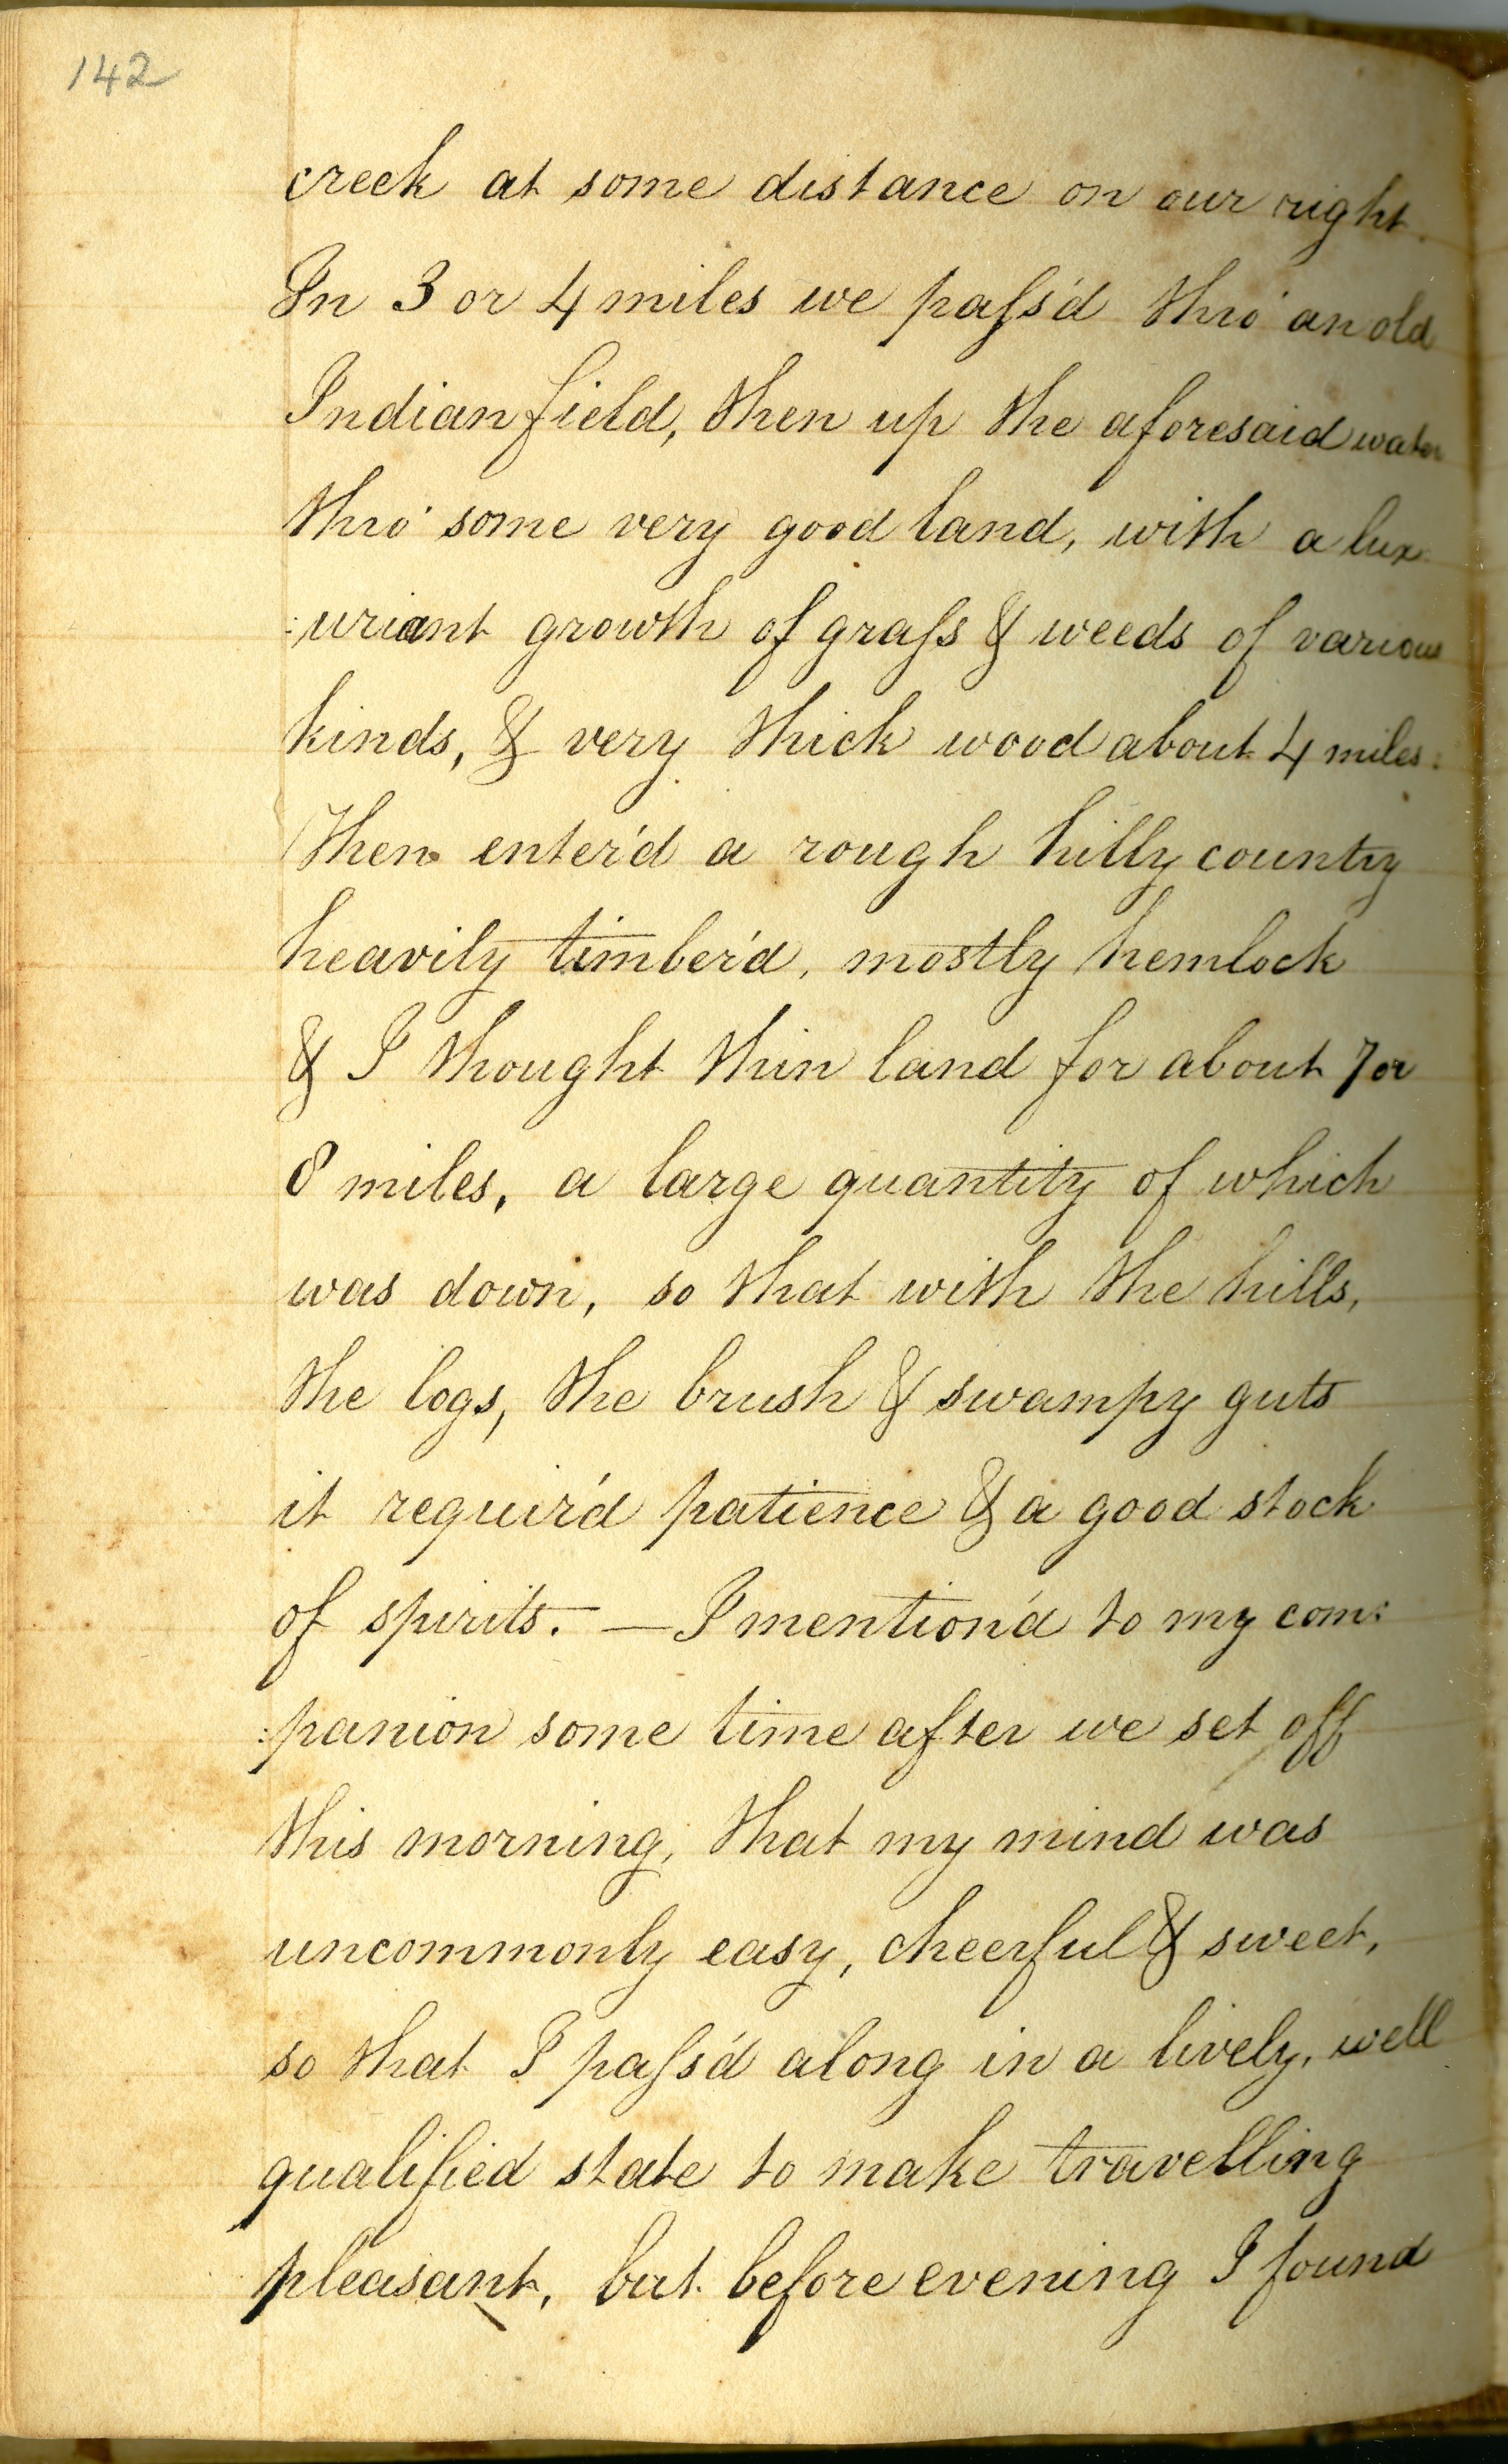 142
creek at some distance on our right.
In 3 or 4 miles we paſs'd thro' an old
Indian field, then up the aforesaid water
thro' some very good land, with a lux:
:uriant growth of graſs & weeds of various
kinds, & very thick wood about 4 miles:
Then enter'd a rough hilly country
heavily timber'd, mostly hemlock
& I thought thin land for about 7 or
8 miles, a large quantity of which
was down, so that with the hills,
the logs, the brush & swampy guts
it requir'd patience & a good stock
of spirits. — I mention'd to my com:
:panion some time after we set off
this morning, that my mind was
uncommonly easy, cheerful & sweet,
so that I paſs'd along in a lively, well
qualified state to make travelling
pleasant, but before evening I found